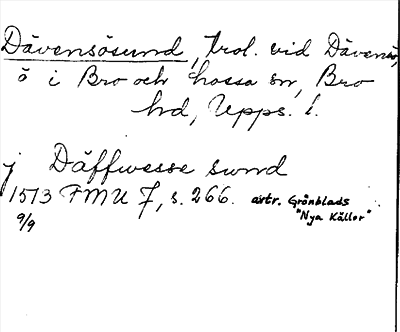 Dävensösund, trol. vid Dävensö,
ö i Bro och Lossa sn, Bro
hd, Upps. l.
j Däffwesse sund
1513 FMU 7, s. 266. avtr. Grönblads
9/9 "Nya Källor"